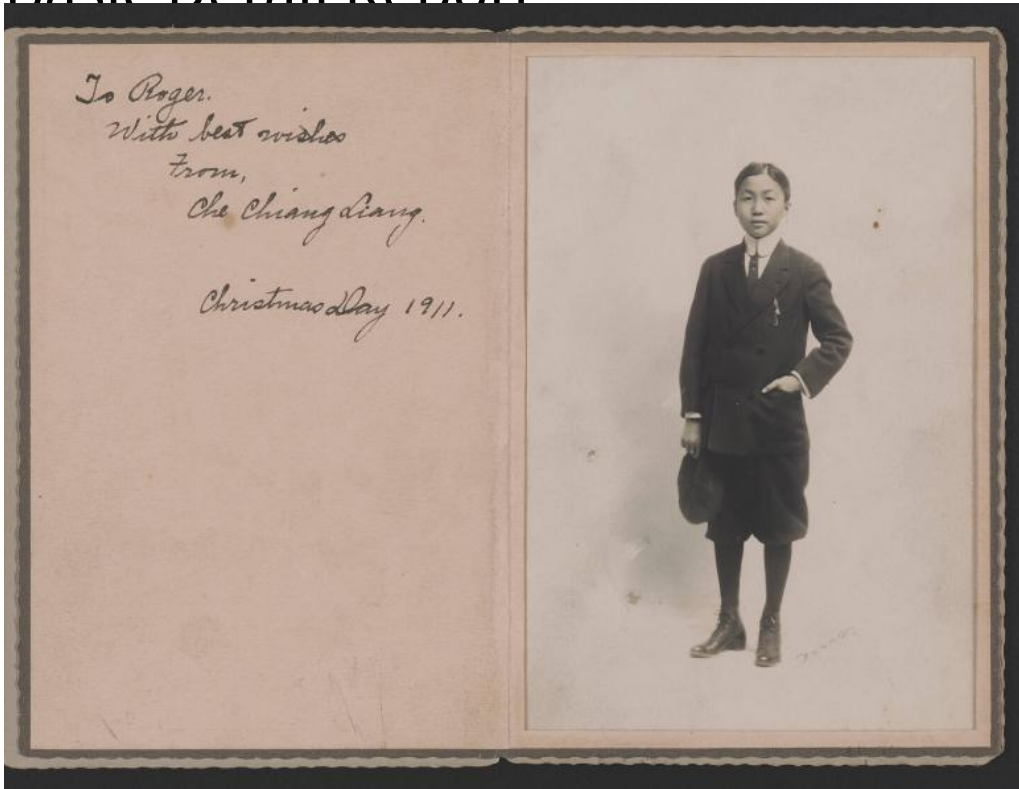 To Roger.
With best wishes
From,
Che Chiang Liang.
Christmas Day 1911.